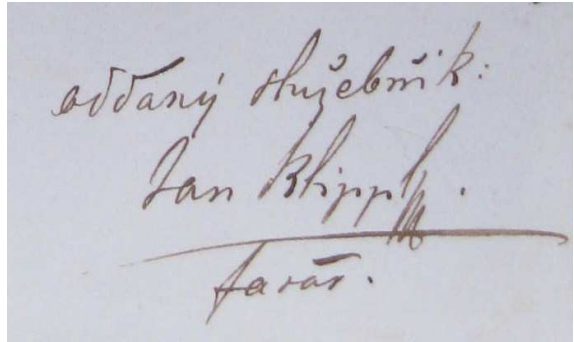 oddaný služebník:
Jan Klippl.
farář.